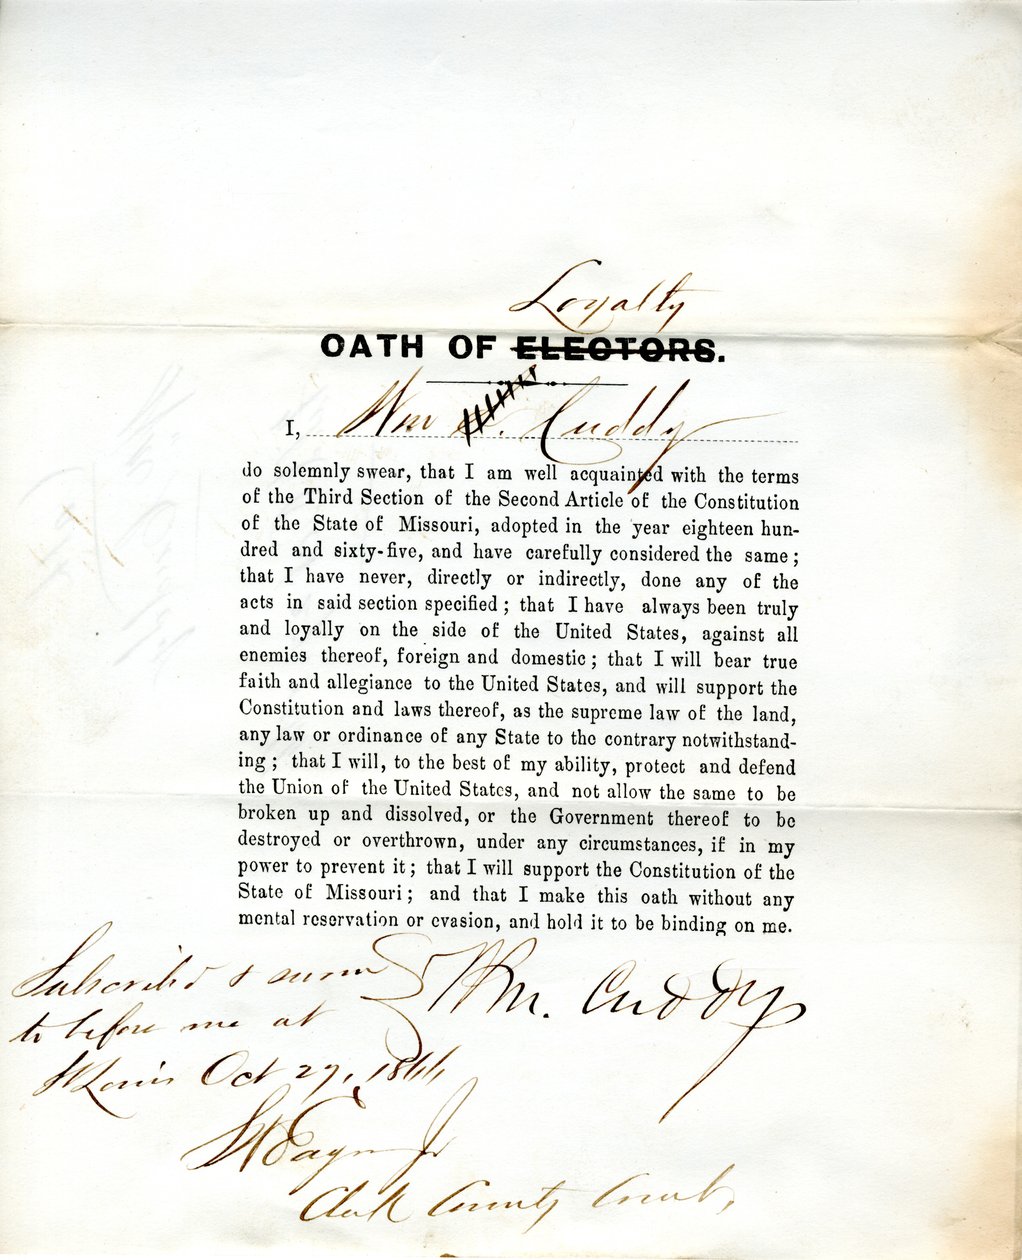 Loyalty
OATH OF ELECTORS.
I, Wm Cuddy
do solemnly swear, that I am well acquainted with the terms
of the Third Section of the Second Article of the Constitution
of the State of Missouri, adopted in the year eighteen hun-
dred and sixty-five, and have carefully considered the same;
that I have never, directly or indirectly, done any of the
acts in said section specified; that I have always been truly
and loyally on the side of the United States, against all
enemies thereof, foreign and domestic; that I will bear true
faith and allegiance to the United States, and will support the
Constitution and laws thereof, as the supreme law of the land,
any law or ordinance of any State to the contrary notwithstand-
ing; that I will, to the best of my ability, protect and defend
the Union of the United States, and not allow the same to be
broken up and dissolved, or the Government thereof to be
destroyed or overthrown, under any circumstances, if in my
power to prevent it; that I will support the Constitution of the
State of Missouri; and that I make this oath without any
mental reservation or evasion, and hold it to be binding on me.
Wm. Cuddy
Subscribed & sworn
to before me at
St Louis Oct 27, 1866
Clerk County Court,